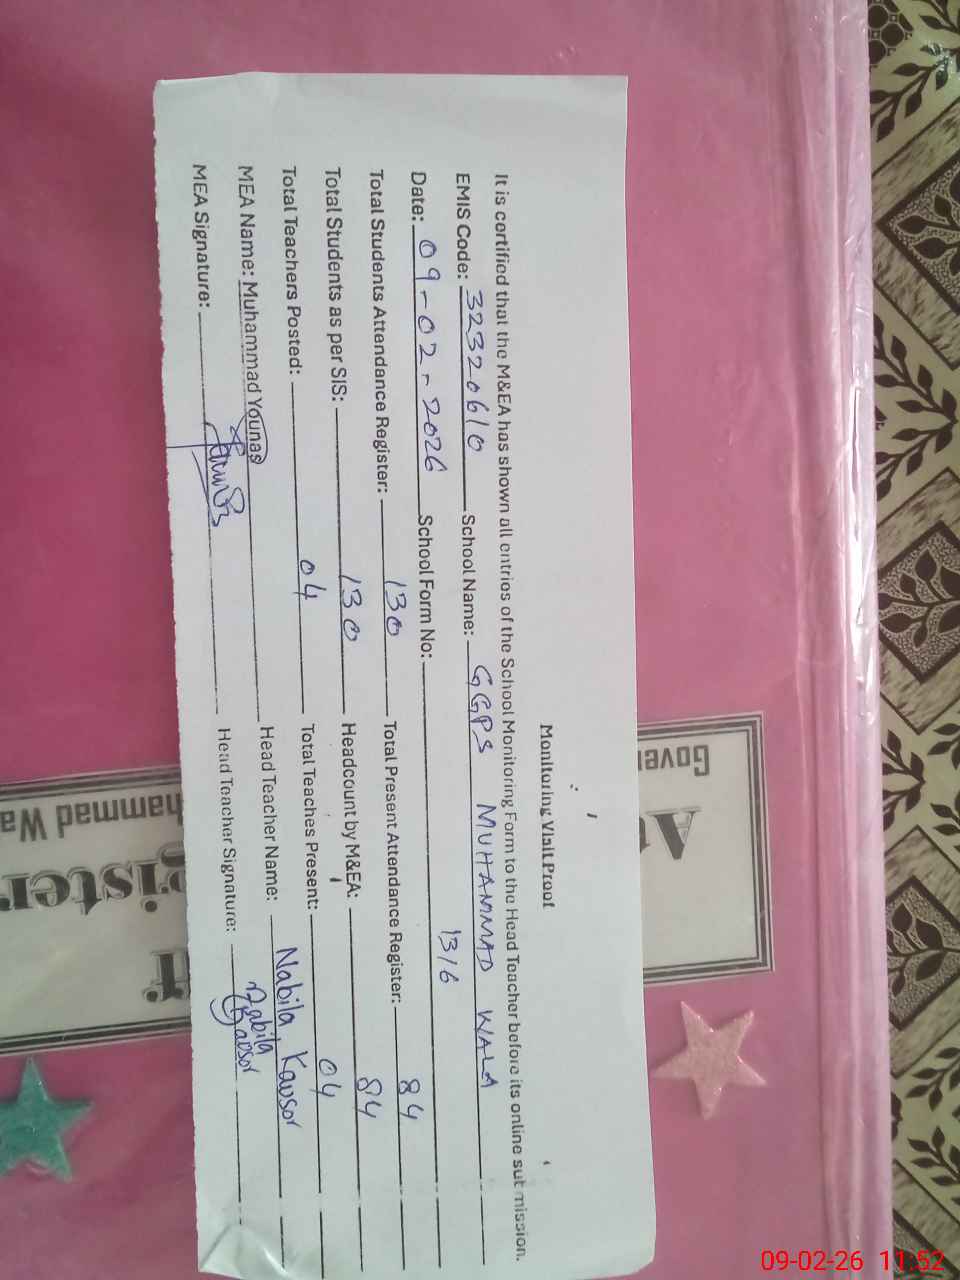 Monitoring Visit Proof
It is certified that the M&EA has shown all entries of the School Monitoring Form to the Head Teacher before its online submission.
EMIS Code: 32320610 School Name: GGPS MUHAMMAD WALA
Date: 09-02-2026 School Form No: 1316
Total Students Attendance Register: 130 Total Present Attendance Register: 84
Total Students as per SIS: 130 Headcount by M&EA: 84
Total Teachers Posted: 04 Total Teaches Present: 04
MEA Name: Muhammad Younas Head Teacher Name: Nabila, Kausor
MEA Signature: Head Teacher Signature: Nabila Kausor
Gover
A
r
gister
hammad Wa
09-02-26 11:52